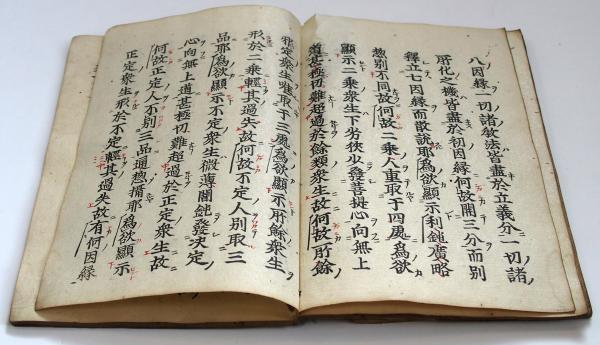 八因縁一切諸教法皆盡於立義分一切諸
所化之機皆盡於初因縁何故開三分而別
釋立七因縁而散説耶為欲顯示利鈍廣略
惣別不同故何故二乗人重取于四風為欲
顯示二乗衆生下劣狹少發菩提心向無上
道甚極切難超過於餘類衆生故何故所餘
邪定衆生唯取于三風為欲顯示所餘衆生
形於二乗輕其過失故何故不定人別取三
品耶為欲顯示不定衆生微薄闇鈍發決定
心向無上道甚極切難超過於正定衆生故
何故正定人不別三品通惣攝耶為欲顯示
正定衆生形於不定輕其過失故有何因縁